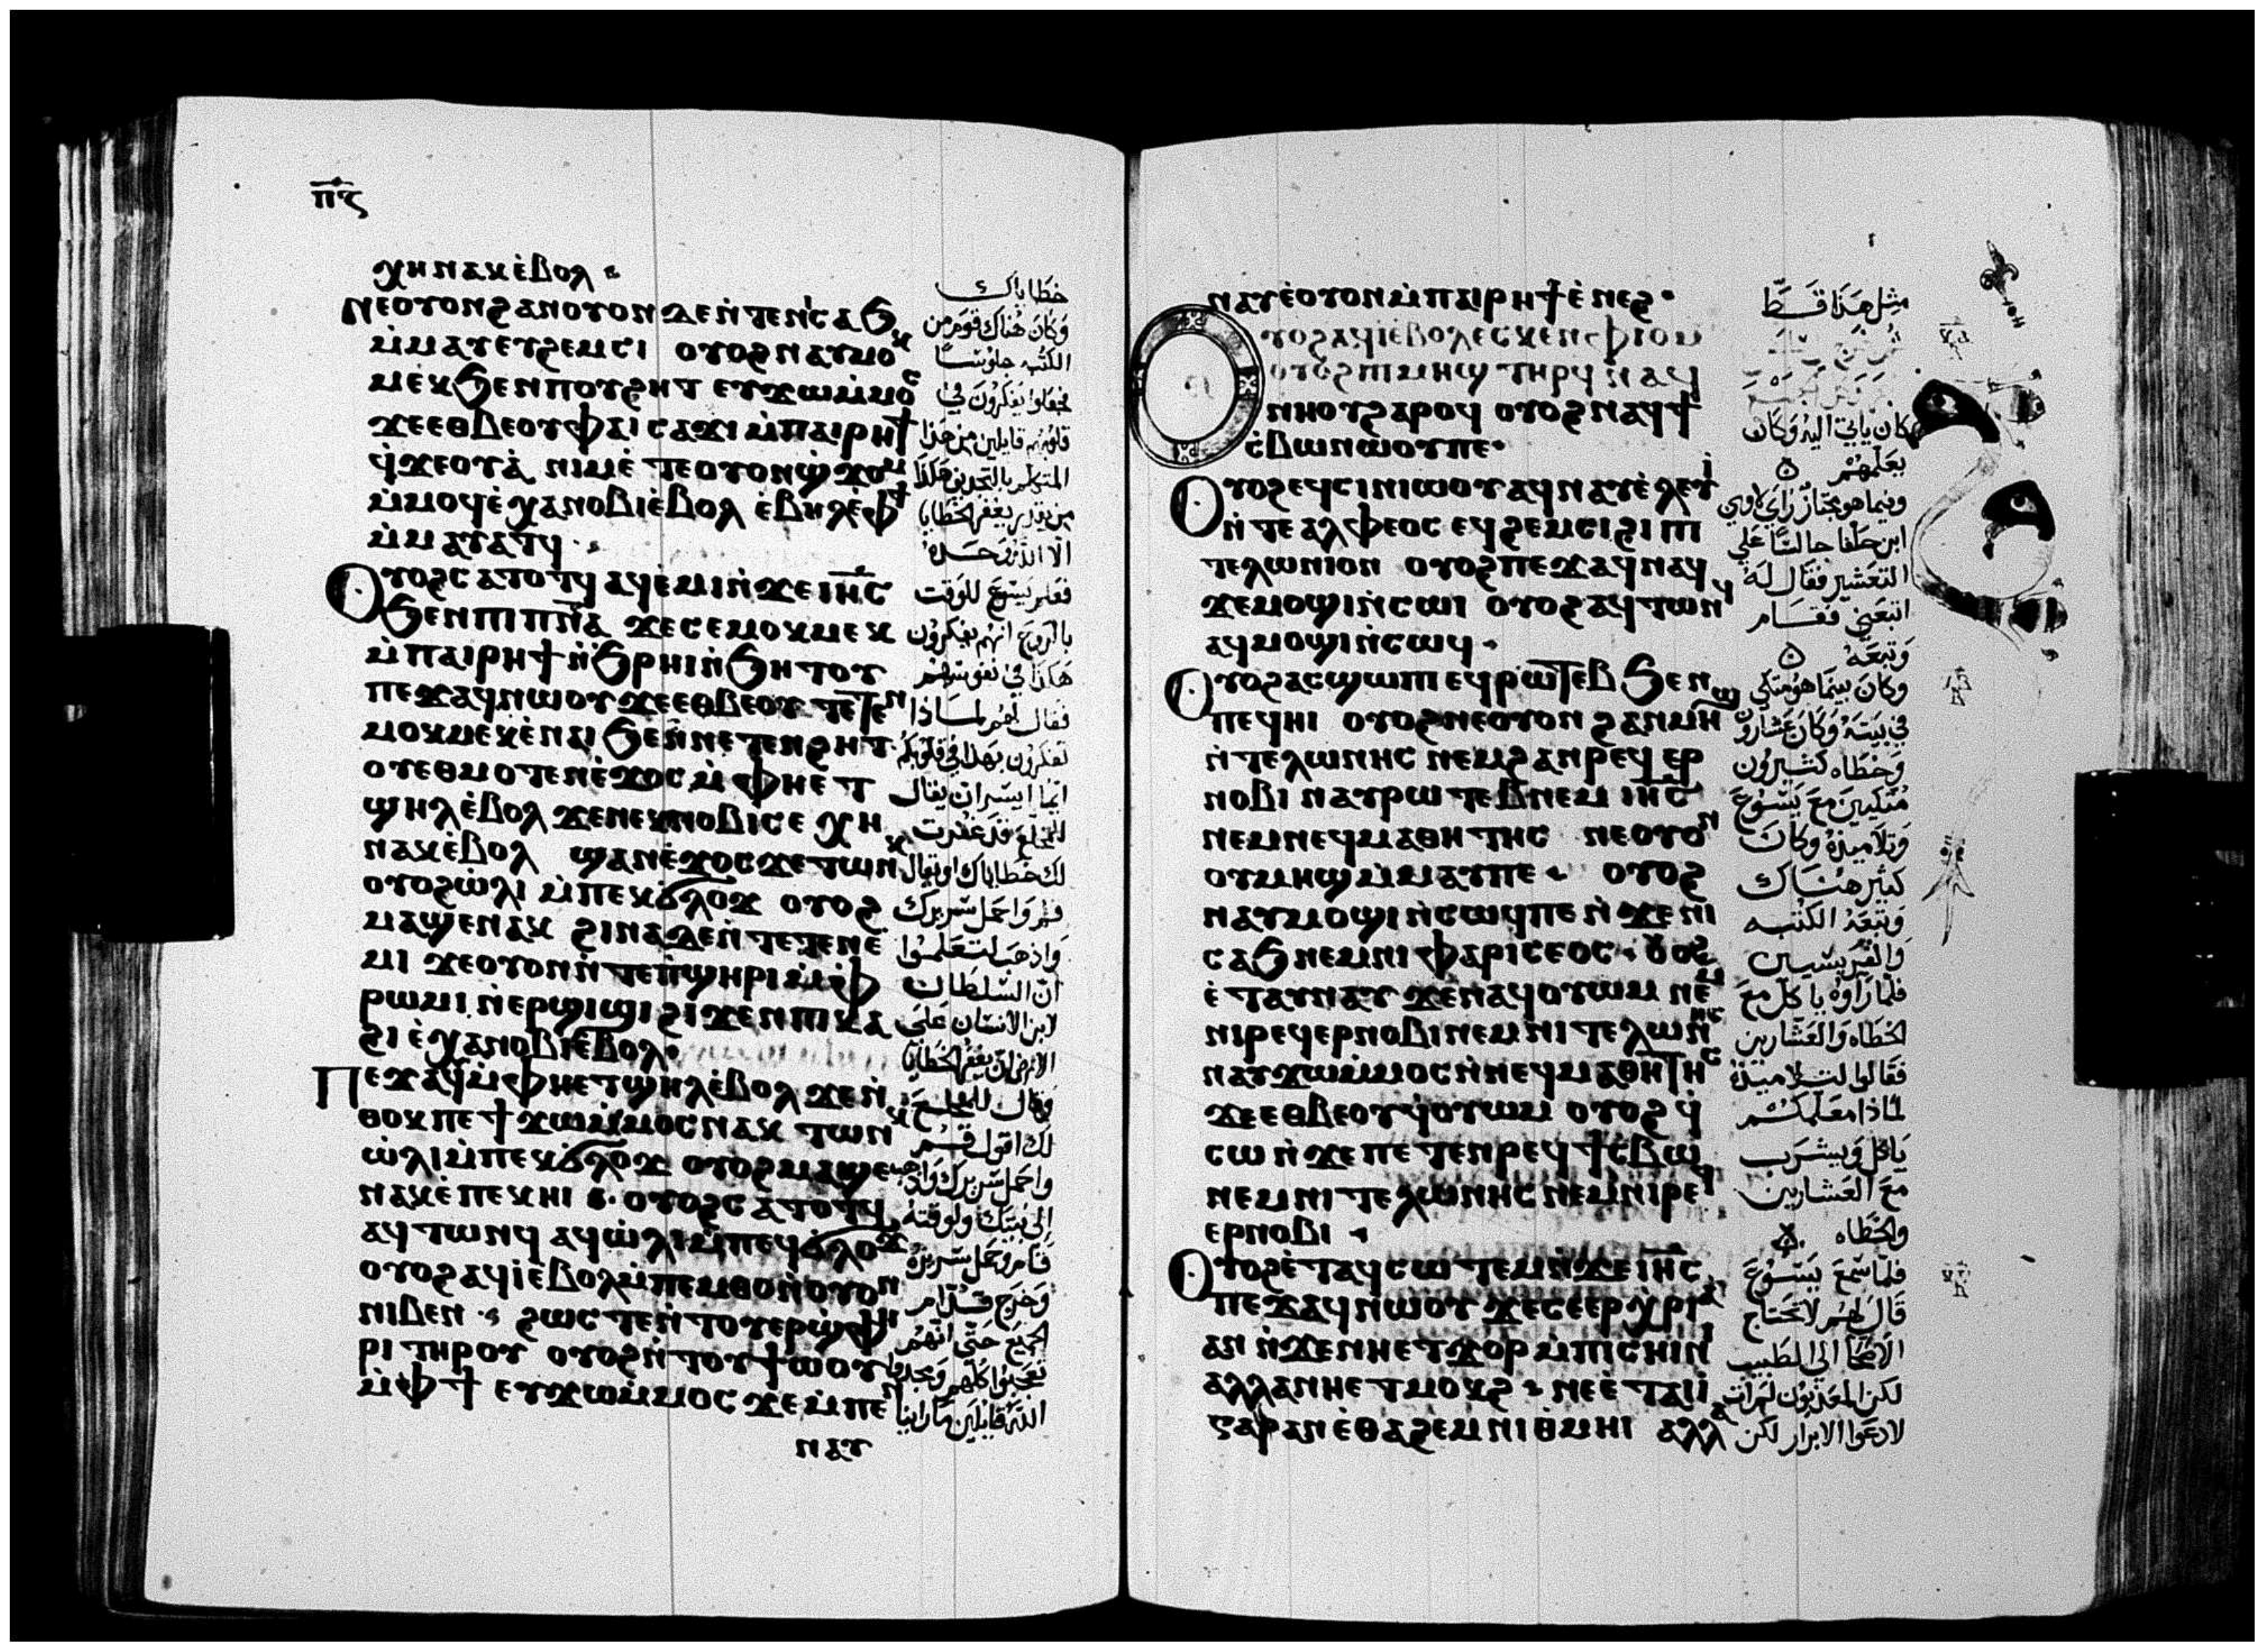 ⲡ̅ⲋ̅
ⲭⲏ ⲛⲁⲕ ⲉ̀ⲃⲟⲗ
ⲛⲉ ⲟⲩⲟⲛ ϩⲁⲛⲟⲩⲟⲛ ⲇⲉ ⲛ̀ⲧⲉ ⲛⲓⲥⲁϧ
ⲙ̀ⲙⲁⲩ ⲉⲩϩⲉⲙⲥⲓ ⲟⲩⲟϩ ⲛⲁⲩⲙⲟⲕ
ⲙⲉⲕ ϧⲉⲛ ⲡⲟⲩϩⲏⲧ ⲉⲩϫⲱⲙ̀ⲙⲟⲥ
ϫⲉ ⲉⲑⲃⲉⲟⲩ ⲫⲁⲓ ⲥⲁϫⲓ ⲙ̀ⲡⲁⲓⲣⲏϯ
ϥ̀ϫⲉⲟⲩⲁ̀ ⲛⲓⲙ ⲉ̀ⲧⲉ ⲟⲩⲟⲛ ϣ̀ϫⲟⲙ
ⲙ̀ⲙⲟϥ ⲉ̀ⲭⲁ ⲛⲟⲃⲓ ⲉ̀ⲃⲟⲗ ⲉ̀ⲃⲏⲗ ⲉ̀ⲫϯ
ⲙ̀ⲙⲁⲩⲁⲧϥ
ⲟⲩⲟϩ ⲥⲁⲧⲟⲧϥ ⲁϥⲉⲙⲓ ⲛ̀ϫⲉ ⲓⲏ̅ⲥ
ϧⲉⲛ ⲡⲓⲡⲛ̅ⲁ ϫⲉ ⲥⲉⲙⲟⲕⲙⲉⲕ
ⲙ̀ⲡⲁⲓⲣⲏϯ ⲛ̀ϧⲣⲏⲓ ⲛ̀ϧⲏⲧⲟⲩ
ⲡⲉϫⲁϥ ⲛⲱⲟⲩ ϫⲉ ⲉⲑⲃⲉⲟⲩ ⲧⲉⲧⲉⲛ
ⲙⲟⲕⲙⲉⲕ ⲉ̀ⲛⲁⲓ ϧⲉⲛ ⲛⲉⲧⲉⲛϩⲏⲧ
ⲟⲩ ⲉⲑⲙⲟⲧⲉⲛ ⲉ̀ϫⲟⲥ ⲙ̀ⲫⲏ ⲉⲧ
ϣⲏⲗ ⲉ̀ⲃⲟⲗ ϫⲉ ⲛⲉⲕⲛⲟⲃⲓ ⲥⲉⲭⲏ
ⲛⲁⲕ ⲉ̀ⲃⲟⲗ ϣⲁⲛ ⲉ̀ϫⲟⲥ ϫⲉ ⲧⲱⲛⲕ
ⲟⲩⲟϩ ⲱ̀ⲗⲓ ⲙ̀ⲡⲉⲕϭⲗⲟϫ ⲟⲩⲟϩ
ⲙⲁϣⲉ ⲛⲁⲕ ϩⲓⲛⲁ ⲇⲉ ⲛ̀ⲧⲉⲧⲉⲛⲉ̀
ⲙⲓ ϫⲉ ⲟⲩⲟⲛ ⲛ̀ⲧⲉ ⲡ̀ϣⲏⲣⲓ ⲙ̀ⲫ
ⲣⲱⲙⲓ ⲛ̀ⲉⲣϣⲓϣⲓ ϩⲓϫⲉⲛ ⲡⲓⲕⲁ
ϩⲓ ⲉ̀ⲭⲁ ⲛⲟⲃⲓ ⲉ̀ⲃⲟⲗ
ⲡⲉϫⲁϥ ⲙ̀ⲫⲏ ⲉⲧϣⲏⲗ ⲉ̀ⲃⲟⲗ ϫⲉ ⲛ̀
ⲑⲟⲕ ⲡⲉϯϫⲱ ⲙ̀ⲙⲟⲥ ⲛⲁⲕ ⲧⲱⲛⲕ
ⲱ̀ⲗⲓ ⲙ̀ⲡⲉⲕϭⲗⲟϫ ⲟⲩⲟϩ ⲙⲁϣⲉ
ⲛⲁⲕ ⲉ̀ⲡⲉⲕⲏⲓ ⲟⲩⲟϩ ⲥⲁⲧⲟⲧϥ
ⲁϥⲧⲱⲛϥ ⲁϥⲱ̀ⲗⲓ ⲙ̀ⲡⲉϥϭⲗⲟϫ
ⲟⲩⲟϩ ⲁϥⲓ̀ ⲉ̀ⲃⲟⲗ ⲙ̀ⲡⲉⲙⲑⲟ ⲛ̀ⲟⲩⲟⲛ
ⲛⲓⲃⲉⲛ ϩⲱⲥⲧⲉ ⲛ̀ⲧⲟⲩⲉⲣϣ̀ⲫⲏ
ⲣⲓ ⲧⲏⲣⲟⲩ ⲟⲩⲟϩ ⲛ̀ⲧⲟⲩϯⲱⲟⲩ
ⲙ̀ⲫϯ ⲉⲩϫⲱ ⲙ̀ⲙⲟⲥ ϫⲉ ⲙ̀ⲡⲉⲛ
ⲛⲁⲩ
خطاياك
وكان هناك قوم من
الكتبه جلوسًا
فجعلوا يفكرون في
قلوبهم قايلين من هذا
المتكلم بالتجديف هكذا
من يقدر يغفر الخطايا
الا الله وحده
فعلم يسوع للوقت
بالروح انهم يفكرون
هكذا في نفوسهم
فقال لهم لماذا
تفكرون بهذا في قلوبكم
ايما ايسر ان يقال
للمخلع قد غفرت
لك خطاياك او يقال
قم واحمل سريرك
واذهب لتعلموا
ان السلطان
لابن الانسان على
الارض ان يغفر الخطايا
وقال للمخلع
لك اقول قم
واحمل سريرك واذهب
الى بيتك ولوقته
قام وحمل سريره
وخرج قدام
الجميع حتى انهم
تعجبوا كلهم ومجدوا
الله قايلين ما راينا
ⲛⲁⲩ ⲉ̀ⲟⲩⲟⲛ ⲙ̀ⲡⲁⲓⲣⲏϯ ⲉ̀ⲛⲉϩ
ⲟⲩⲟϩ ⲁϥⲓ̀ ⲉ̀ⲃⲟⲗ ⲉⲥⲕⲉⲛ ⲫⲓⲟⲙ
ⲟⲩⲟϩ ⲡⲓⲙⲏϣ ⲧⲏⲣϥ ⲛⲁϥ
ⲛⲏⲟⲩ ϩⲁⲣⲟϥ ⲟⲩⲟϩ ⲛⲁϥϯ
ⲥ̀ⲃⲱ ⲛⲱⲟⲩ ⲡⲉ
ⲟⲩⲟϩ ⲉϥⲥⲓⲛⲓⲱⲟⲩ ⲁϥⲛⲁⲩ ⲉ̀ⲗⲉⲩⲓ̀
ⲛ̀ⲧⲉ ⲁⲗⲫⲉⲟⲥ ⲉϥϩⲉⲙⲥⲓ ϩⲓ ⲡⲓ
ⲧⲉⲗⲱⲛⲓⲟⲛ ⲟⲩⲟϩ ⲡⲉϫⲁϥ ⲛⲁϥ
ϫⲉ ⲙⲟϣⲓ ⲛ̀ⲥⲱⲓ ⲟⲩⲟϩ ⲁϥⲧⲱⲛϥ
ⲁϥⲙⲟϣⲓ ⲛ̀ⲥⲱϥ
ⲟⲩⲟϩ ⲁⲥϣⲱⲡⲓ ⲉϥⲣⲱⲧⲉⲃ ϧⲉⲛ
ⲡⲉϥⲏⲓ ⲟⲩⲟϩ ⲛⲉ ⲟⲩⲟⲛ ϩⲁⲛⲙⲏϣ
ⲛ̀ⲧⲉⲗⲱⲛⲏⲥ ⲛⲉⲙ ϩⲁⲛⲣⲉϥⲉⲣ
ⲛⲟⲃⲓ ⲛⲁⲩⲣⲱⲧⲉⲃ ⲛⲉⲙ ⲓⲏ̅ⲥ
ⲛⲉⲙ ⲛⲉϥⲙⲁⲑⲏⲧⲏⲥ ⲛⲉ ⲟⲩⲟⲛ
ⲟⲩⲙⲏϣ ⲙ̀ⲙⲁⲩ ⲡⲉ ⲟⲩⲟϩ
ⲛⲁⲩⲙⲟϣⲓ ⲛ̀ⲥⲱϥ ⲡⲉ ⲛ̀ϫⲉ ⲛⲓ
ⲥⲁϧ ⲛⲉⲙ ⲛⲓⲫⲁⲣⲓⲥⲉⲟⲥ ⲟⲩⲟϩ
ⲉ̀ⲧⲁⲩⲛⲁⲩ ϫⲉ ⲛⲁϥⲟⲩⲱⲙ ⲛⲉⲙ
ⲛⲓⲣⲉϥⲉⲣⲛⲟⲃⲓ ⲛⲉⲙ ⲛⲓⲧⲉⲗⲱⲛⲏⲥ
ⲛⲁⲩϫⲱ ⲙ̀ⲙⲟⲥ ⲛ̀ⲛⲉϥⲙⲁⲑⲏⲧⲏⲥ
ϫⲉ ⲉⲑⲃⲉⲟⲩ ϥ̀ⲟⲩⲱⲙ ⲟⲩⲟϩ ϥ̀
ⲥⲱ ⲛ̀ϫⲉ ⲡⲉⲧⲉⲛⲣⲉϥϯⲥ̀ⲃⲱ
ⲛⲉⲙ ⲛⲓⲧⲉⲗⲱⲛⲏⲥ ⲛⲉⲙ ⲛⲓⲣⲉϥ
ⲉⲣⲛⲟⲃⲓ
ⲟⲩⲟϩ ⲉ̀ⲧⲁϥⲥⲱⲧⲉⲙ ⲛ̀ϫⲉ ⲓⲏ̅ⲥ
ⲡⲉϫⲁϥ ⲛⲱⲟⲩ ϫⲉ ⲥⲉⲉⲣⲭ̀ⲣⲓⲁ
ⲁⲛ ⲛ̀ϫⲉ ⲛⲏ ⲉⲧϫⲟⲣ ⲙ̀ⲡⲓⲥⲏⲓⲛⲓ
ⲁⲗⲗⲁ ⲛⲏ ⲉⲧⲙⲟⲕϩ ⲛⲉ ⲉ̀ⲧⲁⲓⲓ̀
ⲅⲁⲣ ⲁⲛ ⲉ̀ⲑⲁϩⲉⲙ ⲛⲓⲑ̀ⲙⲏⲓ ⲁⲗⲗⲁ
مثل هذا قط
كان ياتي اليه وكان
يعلمهم
وفيما هو مجتاز راى لاوي
ابن حلفا جالسًا على
التعشير فقال له
اتبعني فقام
وتبعه
وكان بينما هو متكي
في بيته وكان عشارون
وخطاه كثيرون
متكيين مع يسوع
وتلاميذه وكان
كثير هناك
وتبعه الكتبه
والفريسيين
فلما راوه ياكل مع
الخطاه والعشارين
فقالوا لتلاميذه
لماذا معلمكم
ياكل ويشرب
مع العشارين
والخطاه
فلما سمع يسوع
قال لهم لا يحتاج
الاصحا الى الطبيب
لكن المعذبون لم ات
لادعوا الابرار لكن